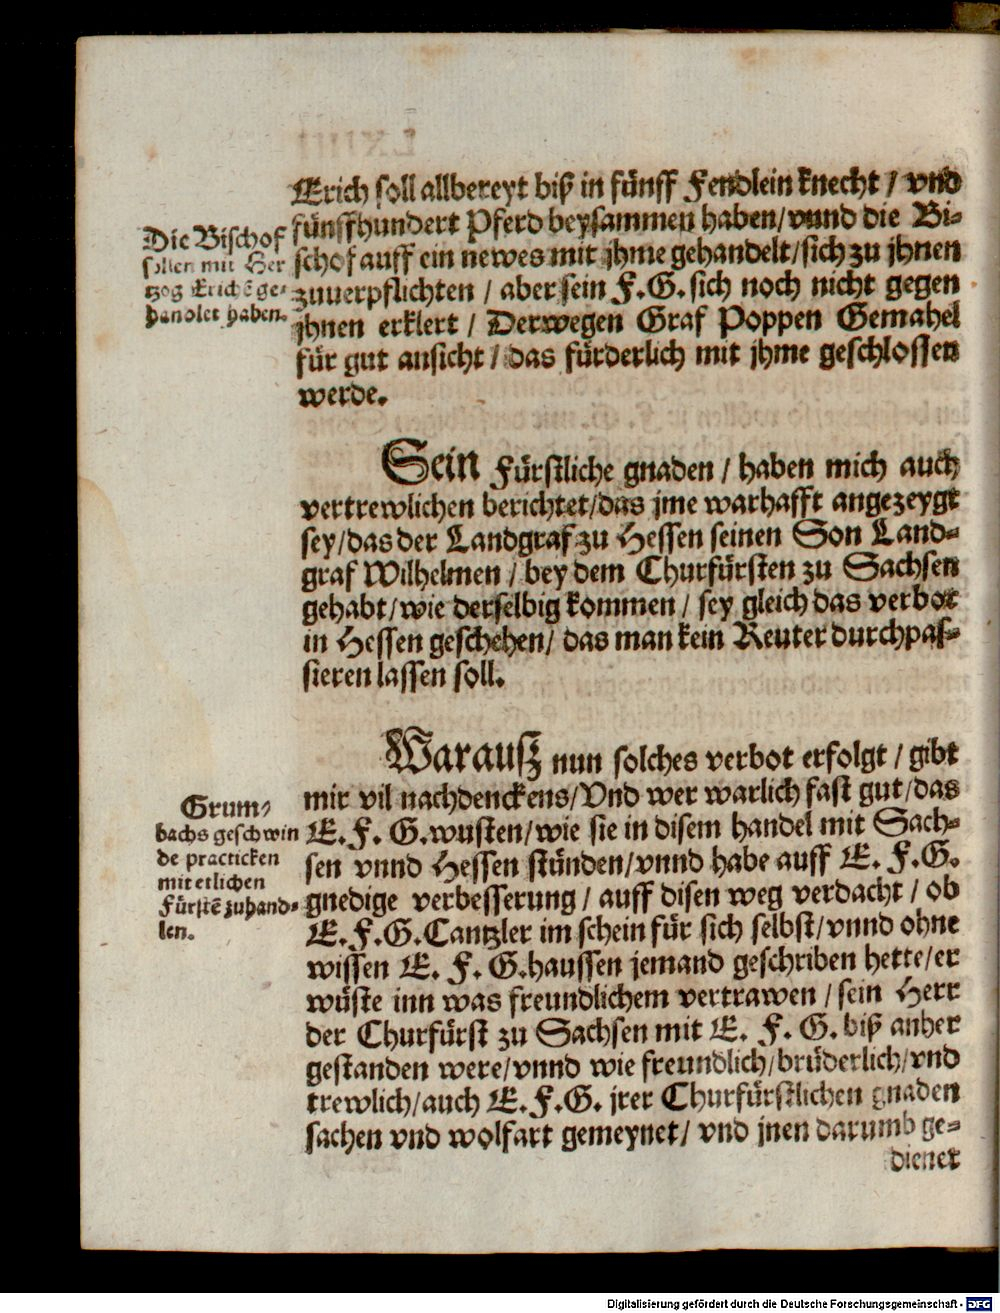 Erich soll allbereyt biß in fünff Fendlein knecht / vnd
fünffhundert Pferd beysammen haben/vnnd die Bi-
schof auff ein newes mit jhme gehandelt/sich zu jhnen
zuuerpflichten / aber sein F.G. sich noch nicht gegen
jhnen erklert / Derwegen Graf Poppen Gemahel
für gut ansicht / das fürderlich mit jhme geschlossen
werde.
Die Bischof
sollen mit Her
tzog Erichē ge-
handlet haben.
Sein Fürstliche gnaden / haben mich auch
vertrewlichen berichtet/das jme warhafft angezeygt
sey/das der Landgraf zu Hessen seinen Son Land-
graf Wilhelmen / bey dem Churfürsten zu Sachsen
gehabt/wie derselbig kommen / sey gleich das verbot
in Hessen geschehen/ das man kein Reuter durchpas-
sieren lassen soll.
Warausz nun solches verbot erfolgt / gibt
mir vil nachdenckens/Vnd wer warlich fast gut/das
E.F. G.wusten/wie sie in disem handel mit Sach-
sen vnnd Hessen stünden/vnnd habe auff E. F.G.
gnedige verbesserung / auff disen weg verdacht / ob
E.F.G.Cantzler im schein für sich selbst/vnnd ohne
wissen E. F. G.haussen jemand geschriben hette/er
wüste inn was freundlichem vertrawen / sein Herr
der Churfürst zu Sachsen mit E. F. G. biß anher
gestanden were/vnnd wie freundlich/brüderlich/vnd
trewlich/auch E.F.G. jrer Churfürstlichen gnaden
sachen vnd wolfart gemeynet/ vnd jnen darumb ge-
diener
Grum-
bachs geschwin
de practicken
mit etlichen
Fürstē zuhand-
len.
Digitalisierung gefördert durch die Deutsche Forschungsgemeinschaft - DFG